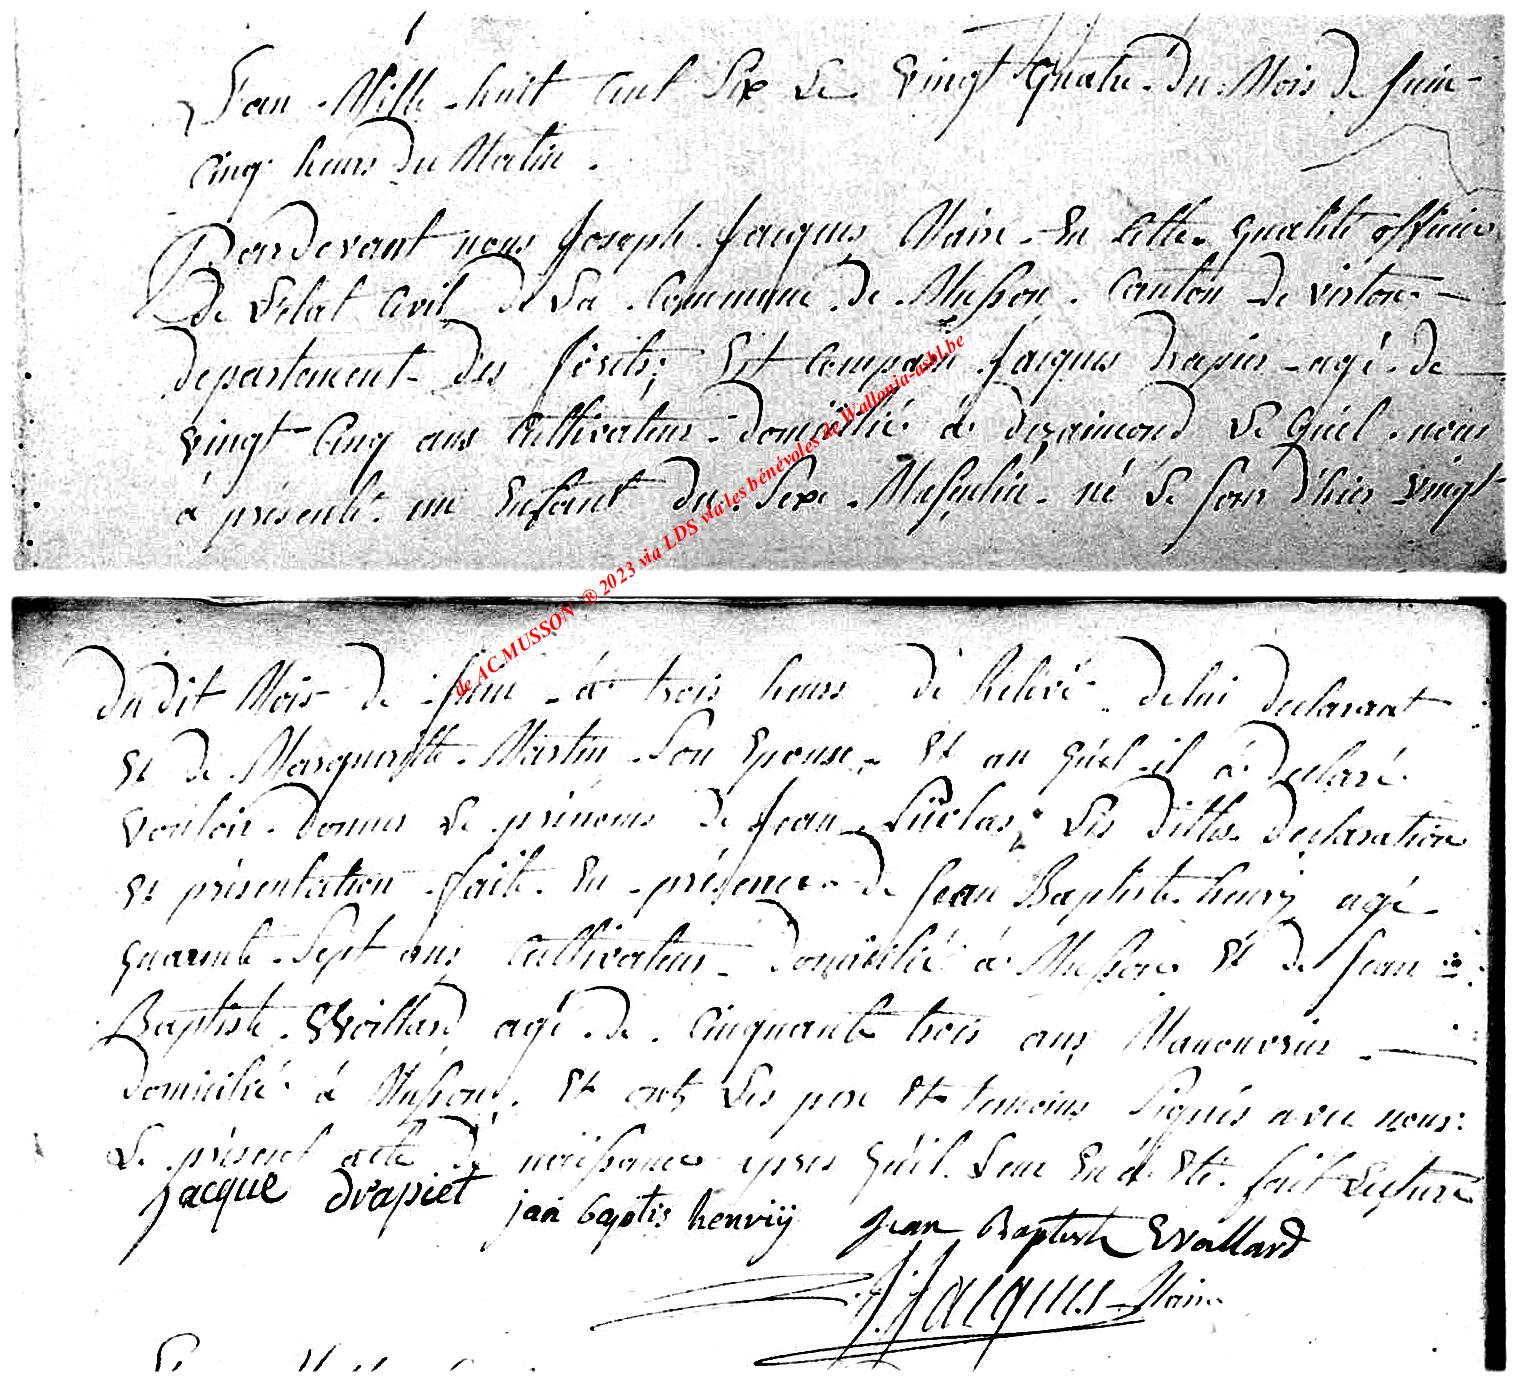 L'an Mille huit Cent Six Le Vingt Quatre du Mois de Juin
Cinq heures Du Matin.
Pardevant nous Joseph Jacques Maire En Cette qualité officier
de L'Etat Civil de La Commune de Musson. Canton de virton
departement des forêts; Est Comparu Jacques Drapier agé de
vingt Cinq ans Cultivateur domicilié à Le Quel nous
à présenté un Enfant du Sexe Masculin né Le Jour d'hier vingt
de AC.MUSSON ® 2023 via LDS via les bénévoles de Wallonia-asbl.be
du dit Mois de Juin à trois heures de Relevé de lui declarant
Et de Margueritte Martin Son Epouse Et au quel il à declaré
Vouloir donner Le prénoms de Jean Les dittes declaration
Et présentation faite En présence de Jean Baptiste henry agé
quarente Sept ans Cultivateur domicilié à Musson Et de Jean
Baptiste Woillard agé de Cinquante trois ans Manouvrier
domicilié à Musson. Et ont Les pere Et temoins Signés avec nous:
Le présent acte de naissance apres qu'il Leur En à Eté fait Lecture
jacque drapiet
jan baptis henrij Jean Baptiste Woillard
J. Jacques Maire